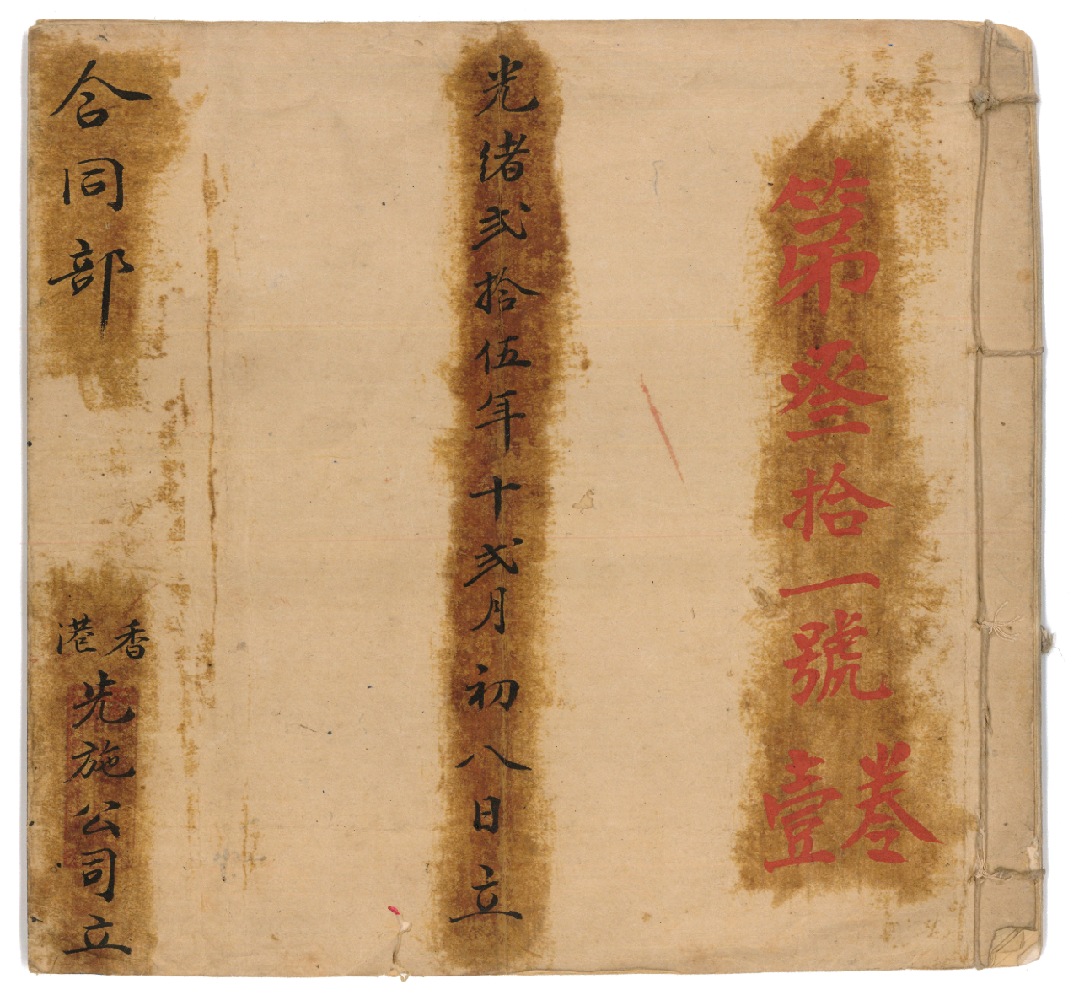 第叄拾一號
卷壹
光緒弍拾伍年十弍月初八日立
合同部
香港
先施公司立